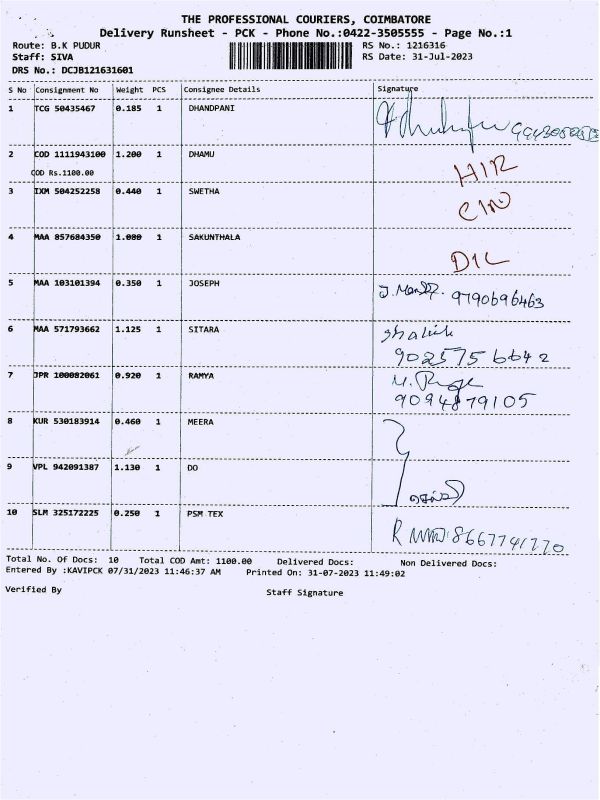 THE PROFESSIONAL COURIERS, COIMBATORE
Delivery Runsheet - PCK - Phone No.:0422-3505555 - Page No.:1
Route: B.K PUDUR RS No.: 1216316
Staff: SIVA RS Date: 31-Jul-2023
DRS No.: DCJB121631601
S No Consignment No Weight PCS Consignee Details Signature
1 TCG 50435467 0.185 1 DHANDPANI
2 COD 1111943100 1.200 1 DHAMU
COD Rs.1100.00 HIR
3 IXM 504252258 0.440 1 SWETHA
4 MAA 857684350 1.080 1 SAKUNTHALA
DIL
5 MAA 103101394 0.350 1 JOSEPH 9790696463
6 MAA 571793662 1.125 1 SITARA
9025756642
7 JPR 100082061 0.920 1 RAMYA
9094879105
8 KUR 530183914 0.460 1 MEERA
9 VPL 942091387 1.130 1 DO
10 SLM 325172225 0.250 1 PSM TEX
8667741770
Total No. Of Docs: 10 Total COD Amt: 1100.00 Delivered Docs: Non Delivered Docs:
Entered By :KAVIPCK 07/31/2023 11:46:37 AM Printed On: 31-07-2023 11:49:02
Verified By Staff Signature